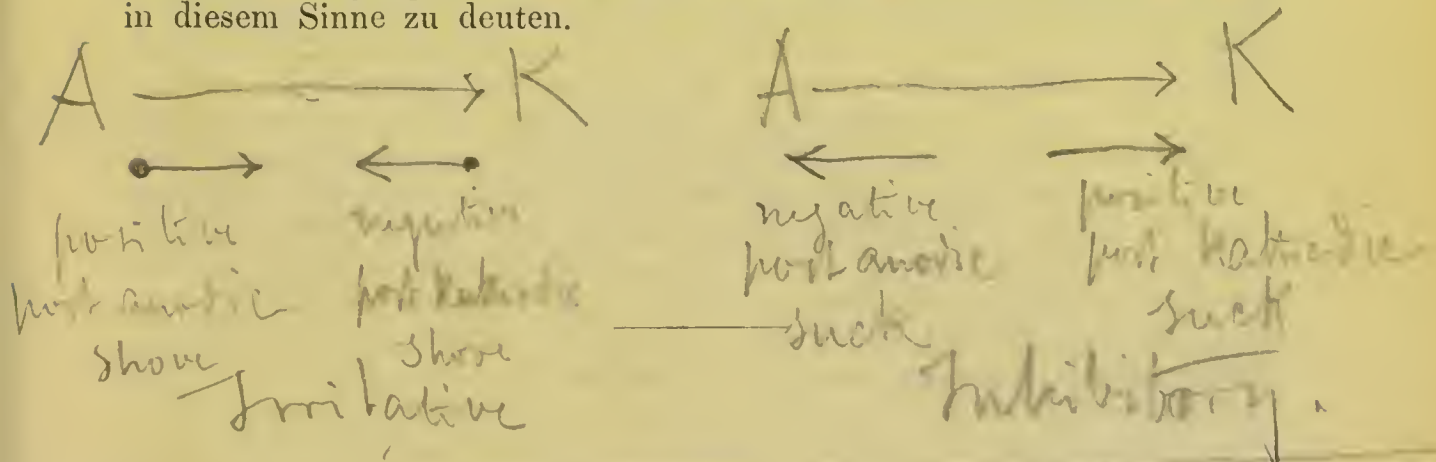 in diesem Sinne zu deuten.
A K
positive
post anodic
shove
negative
post Kathodic
shove
Irritative
A K
negative
post anodic
suck
positive
post Kathodic
suck
Inhibitory.